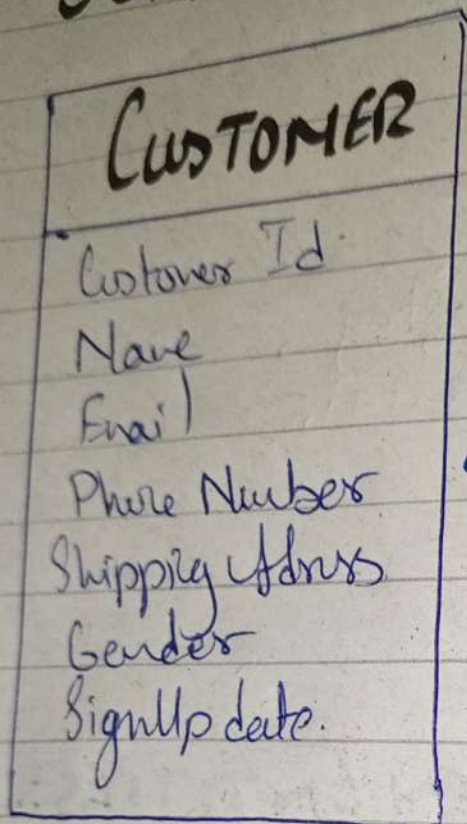 CUSTOMER
Customer Id
Name
Email
Phone Number
Shipping Adress
Gender
SignUp date.